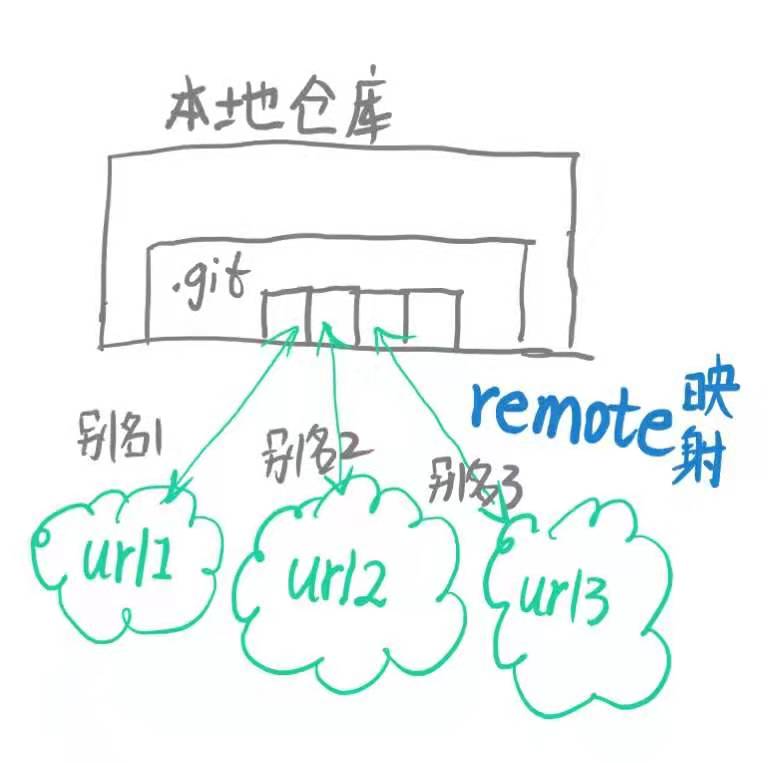 本地仓库
.git
remote映射
别名1
别名2
别名3
url1
url2
url3